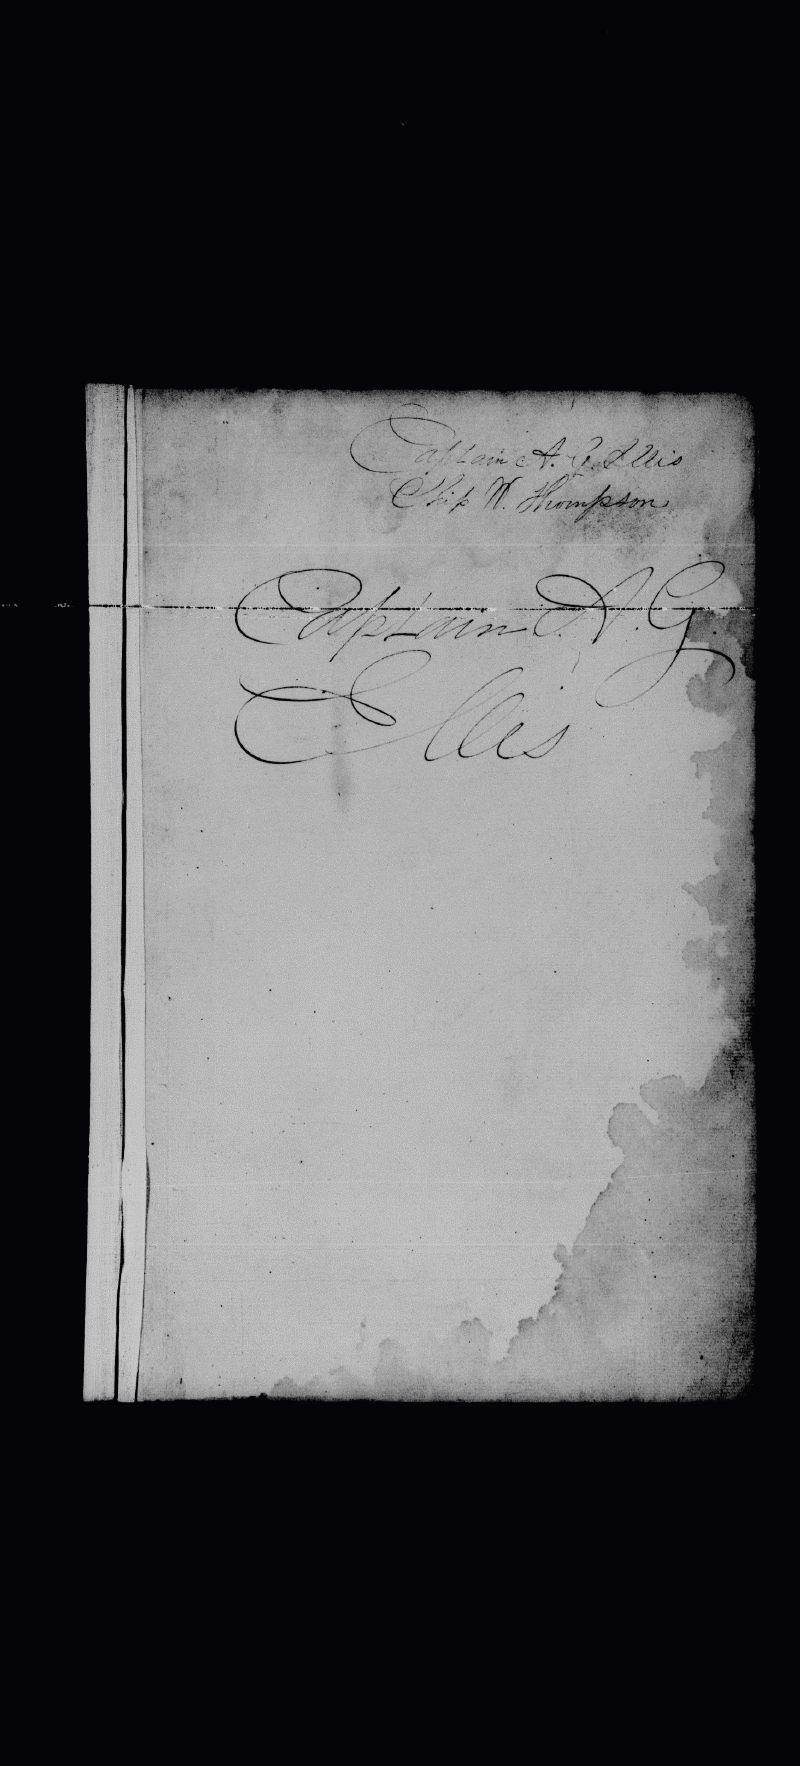 Captain A. G. Ellis
Ship W. Thompson
Captain A. G.
Ellis